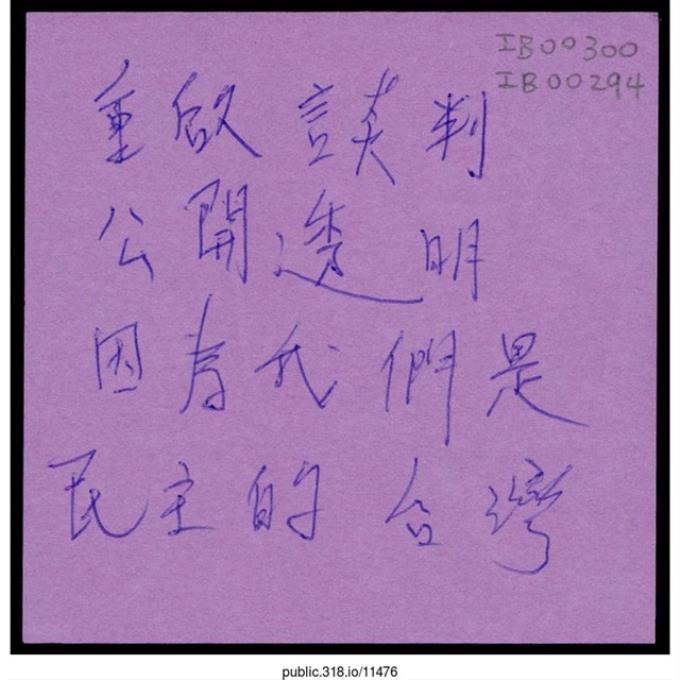 IB00300
IB00294
重啟談判
公開透明
因為我們是
民主的台灣
public.318.io/11476